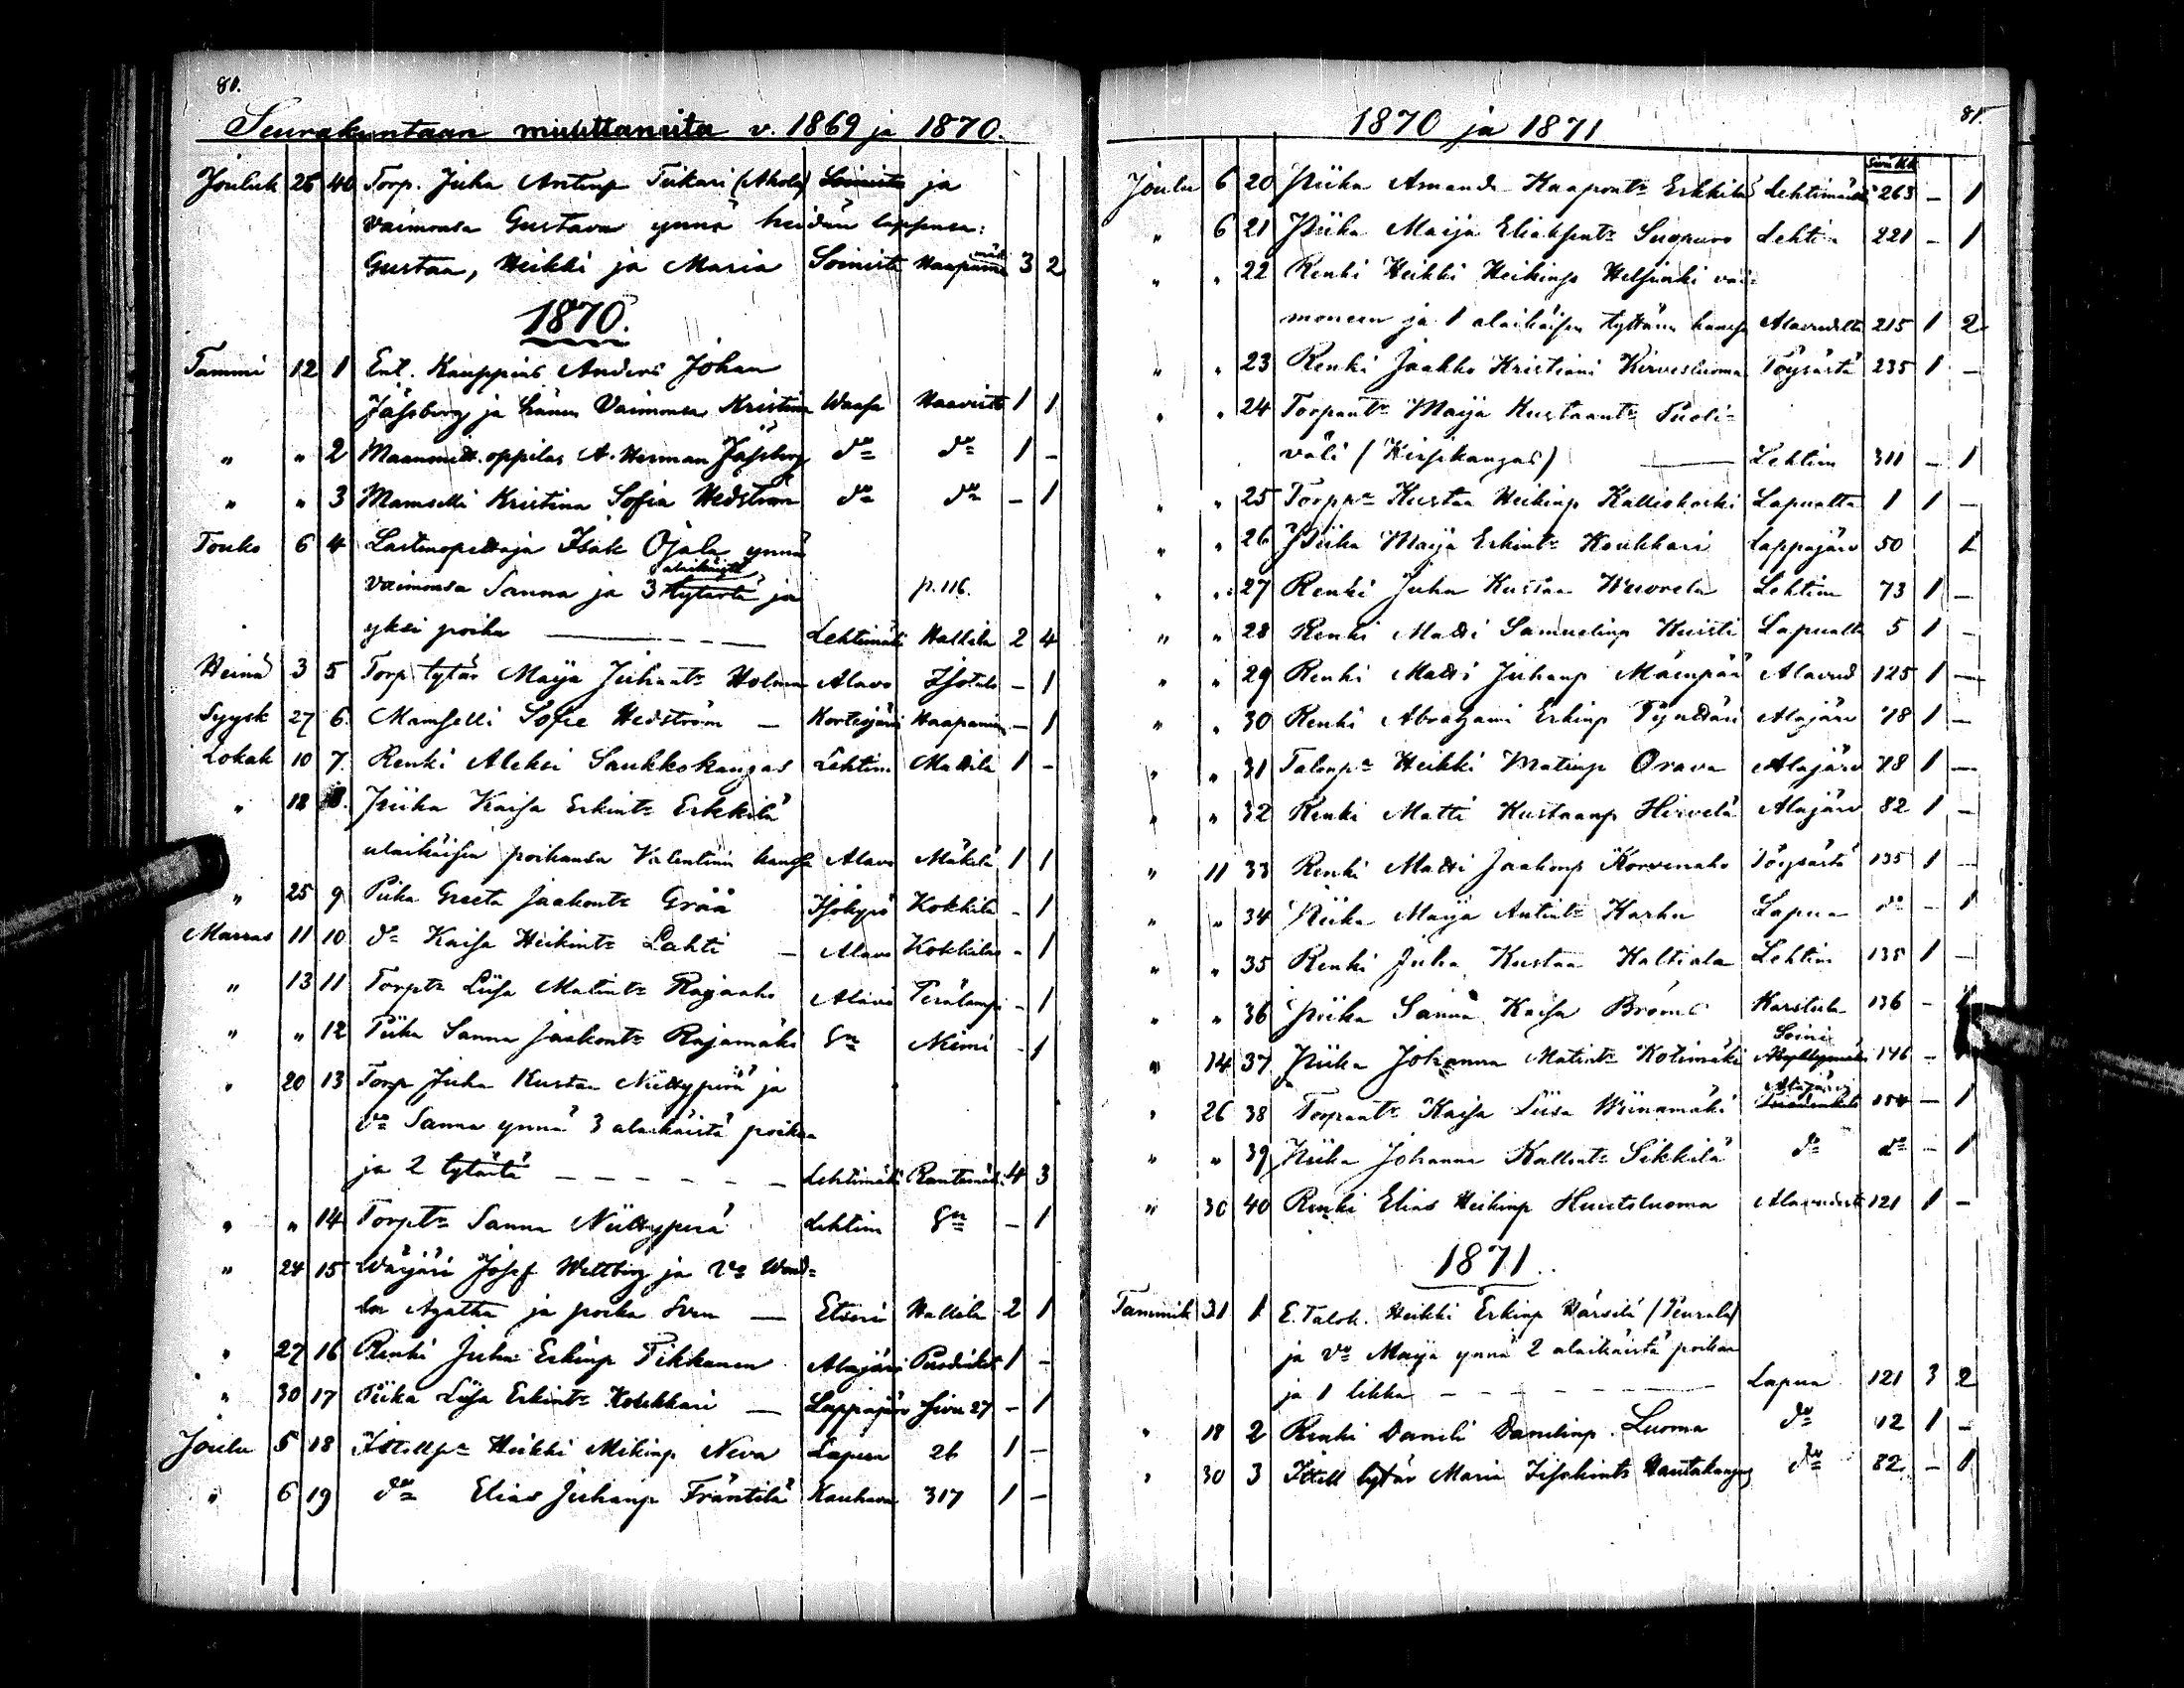 81.
Seurakuntaan muuttaneita v. 1869 ja 1870.
Jouluk 26 40 Torp. Juha Antinp Tiikari (Ahola) Soinista ja
vaimonsa Gustava ynnä heidän lapsensa:
Gustaa, Heikki ja Maria Soinista 3 2
1870.
Tammi 12 1 Ent. Kauppias Anders Johan
Jässberg ja hänen Vaimonsa Kristina Waasa Haavisto 1 1
" " 2 Maanmitt. oppilas A. Herman Jässberg do do 1 -
" " 3 Mamselli Kristina Sofia Hedström do do - 1
Touko 6 4 Lastenopettaja Isak Ojala ynnä
alaikäistä
vaimonsa Sanna ja 3 tytärtä ja p. 116.
yksi poika — Lehtimäki Hallila 2 4
Heinä 3 5 Torp tytär Maija Juhant. Holma Alavo Isotalo - 1
Syysk 27 6. Mamselli Sofie Hedström — Kortesjärvi Haapanen - 1
Lokak 10 7. Renki Aleksi Saukkokangas Lehtim Mattila 1 -
" 18 8. Piika Kaisa Erkint. Erkkilä
alaikäisen poikansa Valentinin kanssa Alavo Mäkelä 1 1
" 25 9 Piika Greeta Jaakont. Grää Isokyrö Kokkila - 1
Marras 11 10 do Kaisa Heikint. Lahti — Alavo Kokkila - 1
" 13 11 Torpt. Liisa Matint. Rajaaho Alavo Terälampi - 1
" " 12 Piika Sanna Jaakont. Rajamäki do Niemi - 1
" 20 13 Torp Juha Kustaa Niittyperä ja
vo Sanna ynnä 3 alaikäistä poikaa
ja 2 tytärtä - - - - - - Lehtimäki Rantamäki 4 3
" " 14 Torpt. Sanna Niittyperä Lehtim do - 1
" 24 15 Värjäri Josef Wettberg ja Vo Wend=
la Agatha ja poika Sven — Etseri Hallila 2 1
" 27 16 Renki Juha Erkinp Tikkanen Alajärvi 1 -
" 30 17 Piika Liisa Erkint. Koukkari — Lappajärv Sivu 27 - 1
Joulu 5 18 Itsellp. Heikki Mikinp Neva Lapua 26 1 -
" 6 19 do Elias Juhanp Fräntilä Kauhava 317 1 -
1870 ja 1871
81.
Sivu KK
Joulu 6 20 Piika Amanda Kaapont. Erkkilä Lehtimäki 263 - 1
" 6 21 Piika Maija Eliakent. Suopuro Lehtim 221 - 1
" " 22 Renki Heikki Heikinp Helsinki vai=
moneen ja 1 alaikäisen tyttären kanssa Alavudelta 215 1 2
" " 23 Renki Jaakko Kristiani Kirvesluoma Töysästä 235 1 -
" " 24 Torpant. Maija Kustaant. Puoli=
väli (Kirsikangas) — Lehtim 311 - 1
" " 25 Torpp. Kustaa Heikinp Kalliokoski Lapualta 1 1 -
" " 26 Piika Maija Erkint. Koukkari Lappajärv 50 1
" " 27 Renki Juha Kustaa Wuorela Lehtim 73 1 -
" " 28 Renki Matti Samuelinp Huisti Lapualta 5 1 -
" " 29 Renki Matti Juhanp Mäenpää Alavud 125 1 -
" " 30 Renki Abrahami Erkinp Pynttäri Alajärv 78 1 -
" " 31 Talonp. Heikki Matinp Orava Alajärv 78 1 -
" " 32 Renki Matti Kustaanp Hirvelä Alajärv 82 1 -
" 11 33 Renki Matti Jaakonp Korvenaho Töysästä 135 1 -
" " 34 Piika Maija Antint. Karhu Lapua do - 1
" " 35 Renki Juha Kustaa Kaltiala Lehtim 135 1 -
" " 36 Piika Sanna Kaisa Broms Karstula 136 - 1
Soini
" 14 37 Piika Johanna Matint. Kotimäki 146 - 1
Alajärvi
" 26 38 Torpant. Kaisa Liisa Wiinamäki 154 - 1
" " 39 Piika Johanna Kallent. Sikkilä do do - 1
" 30 40 Renki Elias Heikinp Huutoluoma Alavudesta 121 1 -
1871.
Tammik 31 1 E. Talok. Heikki Erkinp Harsilä (Peurala)
ja vo Maija ynnä 2 alaikäistä poikaa
ja 1 likka - - - - Lapua 121 3 2
" 18 2 Renki Daneli Danelinp. Luoma do 12 1 -
" 30 3 Itsell tytär Maria Hautakangas do 82 - 1